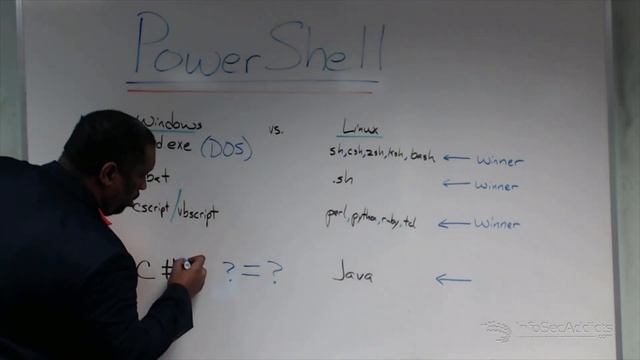 PowerShell
Windows vs. Linux
d exe (DOS) sh,csh,zsh,ksh,bash ← winner
bat .sh ← winner
cscript/vbscript perl,python,ruby,tcl ← winner
C# ?=? Java ←
InfoSecAddicts